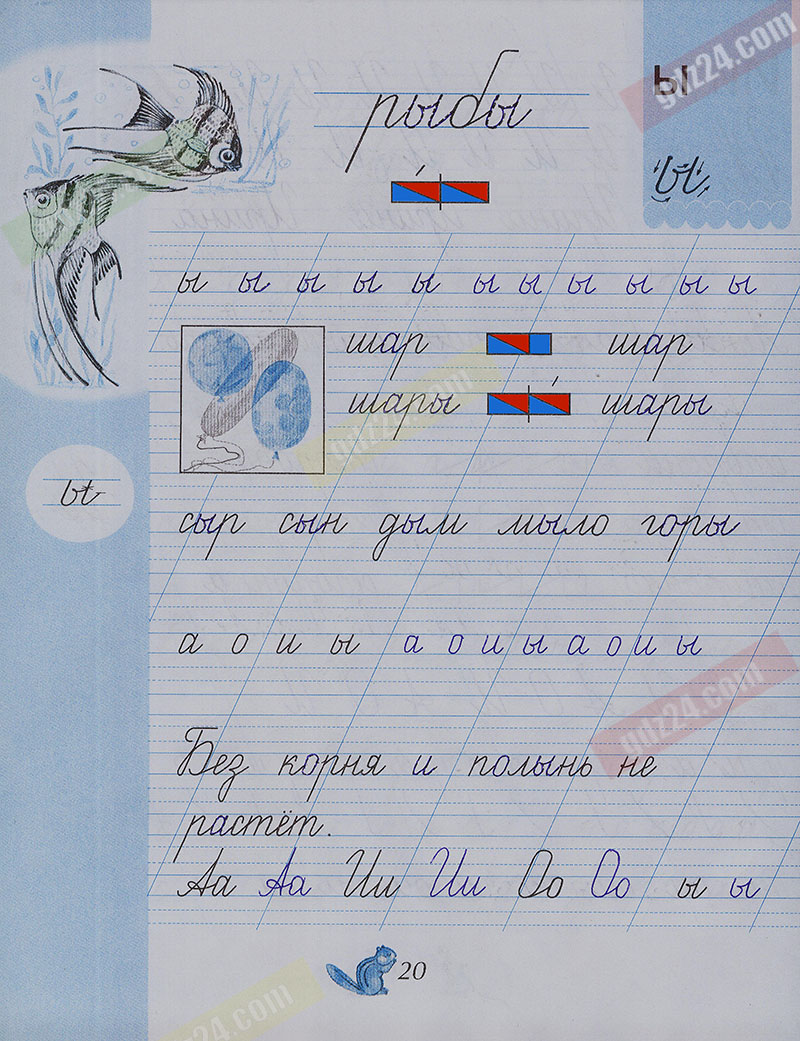 ы
gdz24.com
рыбы
ы
ы ы ы ы ы ы ы ы ы ы ы
шар шар
шары шары
gdz24.com
ы
сыр сын дым мыло горы
а о и ы а о и ы а о и ы
gdz24.com
Без корня и полынь не
растёт.
Аа Аа Ии Ии Оо Оо ы ы
20
gdz24.com